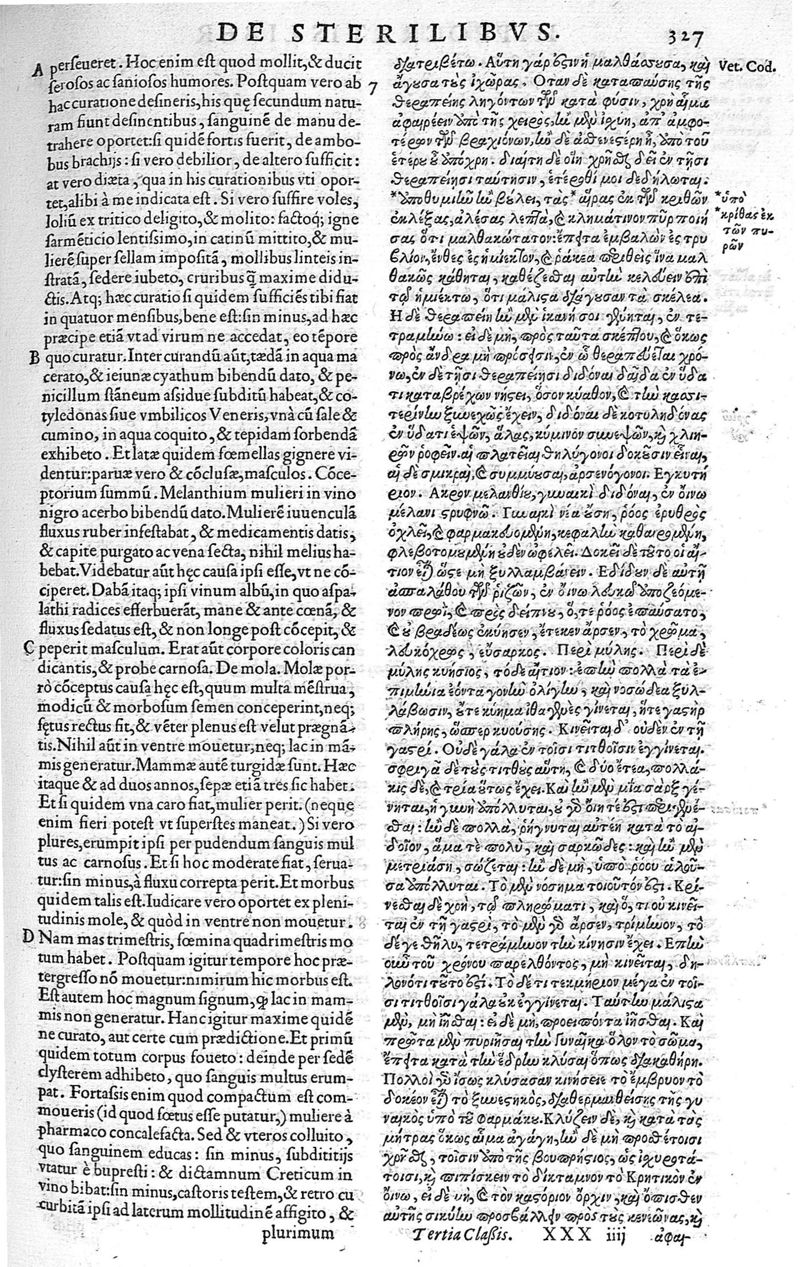 DE STERILIBVS.
327
A perseueret. Hoc enim est quod mollit, & ducit
serosos ac saniosos humores. Postquam vero ab
hac curatione desineris, his quę secundum natu-
ram fiunt desinentibus, sanguinē de manu de-
trahere oportet: si quidē fortis fuerit, de ambo-
bus brachijs: si vero debilior, de altero sufficit:
at vero diæta, qua in his curationibus vti opor-
tet, alibi à me indicata est. Si vero suffire voles,
loliū ex tritico deligito, & molito: factoq; igne
sarmēticio lentissimo, in catinū mittito, & mu-
lierē super sellam impositā, mollibus linteis in-
stratā, sedere iubeto, cruribus q̃ maxime didu-
ctis. Atq; hæc curatio si quidem sufficiēs tibi fiat
in quatuor mensibus, bene est: sin minus, ad hæc
præcipe etiā vt ad virum ne accedat, eo tēpore
B quo curatur. Inter curandū aūt, tædā in aqua ma
cerato, & ieiunæ cyathum bibendū dato, & pe-
nicillum stāneum assidue subditū habeat, & co-
tyledonas siue vmbilicos Veneris, vnà cū sale &
cumino, in aqua coquito, & tepidam sorbendā
exhibeto. Et latæ quidem fœmellas gignere vi-
dentur: paruæ vero & cōclusæ, masculos. Cōce-
ptorium summū. Melanthium mulieri in vino
nigro acerbo bibendū dato. Mulierē iuuenculā
fluxus ruber infestabat, & medicamentis datis,
& capite purgato ac vena secta, nihil melius ha-
bebat. Videbatur aūt hęc causa ipsi esse, vt ne cō-
ciperet. Dabā itaq; ipsi vinum albū, in quo aspa-
lathi radices efferbuerāt, mane & ante cœnā, &
fluxus sedatus est, & non longe post cōcepit, &
C peperit masculum. Erat aūt corpore coloris can
dicantis, & probe carnosa. De mola. Molæ por-
rò cōceptus causa hęc est, quum multa mēstrua,
modicū & morbosum semen conceperint, neq;
fętus rectus fit, & vēter plenus est velut prægnā-
tis. Nihil aūt in ventre mouetur, neq; lac in mā-
mis generatur. Mammæ autē turgidæ sunt. Hæc
itaque & ad duos annos, sepæ etiā tres sic habet.
Et si quidem vna caro fiat, mulier perit. (neque
enim fieri potest vt superstes maneat.) Si vero
plures, erumpit ipsi per pudendum sanguis mul
tus ac carnosus. Et si hoc moderate fiat, serua-
tur: sin minus, à fluxu correpta perit. Et morbus
quidem talis est. Iudicare vero oportet ex pleni-
tudinis mole, & quòd in ventre non mouetur.
D Nam mas trimestris, fœmina quadrimestris mo
tum habet. Postquam igitur tempore hoc præ-
tergresso nō mouetur: nimirum hic morbus est.
Est autem hoc magnum signum, q̃ lac in mam-
mis non generatur. Hanc igitur maxime quidē
ne curato, aut certe cum prædictione. Et primū
quidem totum corpus foueto: deinde per sedē
clysterem adhibeto, quo sanguis multus erum-
pat. Fortassis enim quod compactum est com-
moueris (id quod fœtus esse putatur,) muliere à
pharmaco concalefacta. Sed & vteros colluito,
quo sanguinem educas: sin minus, subdititijs
vtatur è bupresti: & dictamnum Creticum in
vino bibat: sin minus, castoris testem, & retro cu
curbitā ipsi ad laterum mollitudinē affigito, &
plurimum
διατριβέτω. Αὕτη γάρ ἐστιν ἡ μαλθάσσουσα, καὶ
7 ἄγουσα τοὺς ἰχῶρας. Ὅταν δὲ καταπαύσης τῆς
θεραπείης ληγόντων τῶν κατὰ φύσιν, χρὴ αἷμα
ἀφαιρέειν ὑπὸ τῆς χειρὸς, ἢν μὲν ἰσχύῃ, ἀπ' ἀμφο-
τέρων τῶν βραχιόνων, ἢν δὲ ἀσθενεστέρη ᾖ, ὑπὸ τοῦ
ἑτέρου ὑπόχρη. διαίτῃ δὲ οἵῃ χρῆσθαι δεῖ ἐν τῇσι
θεραπείησι ταύτησιν, ἑτέρωθί μοι δεδήλωται.
*Ὑποθυμιῶν ἢν βούλει, τὰς *αἴρας ἐκ τῶν κριθῶν
ἐκλέξας, ἀλέσας λεπτὰ, καὶ κλημάτινον πῦρ ποιή
σας ὅτι μαλθακώτατον: ἔπειτα ἐμβαλὼν ἐς τρυ
βλίον, ἔνθες ἐς ἡμίεκτον, καὶ ῥάκεα περιθεὶς ἵνα μαλ
θακῶς κάθηται, καθέζεσθαι αὐτὴν κελεύειν ἐπὶ
τῷ ἡμιέκτῳ, ὅτι μάλιστα διάγουσαν τὰ σκέλεα.
Ἡ δὲ θεραπείη ἢν μὲν ἱκανή σοι γένηται, ἐν τε-
τραμήνῳ: εἰ δὲ μὴ, πρὸς ταῦτα σκέπτου, καὶ ὅκως
πρὸς ἄνδρα μὴ πρόσεισιν, ἐν ᾧ θεραπεύεται χρό-
νῳ, ἐν δὲ τῇσι θεραπείησι διδόναι δαΐδα ἐν ὕδα
τι καταβρέχων νήστει, ὅσον κύαθον, καὶ τὴν κασσι-
τερίνην ξυνεχῶς ἔχειν, διδόναι δὲ κοτυληδόνας
ἐν ὕδατι ἑψῶν, ἅλας, κύμινον συνεψῶν, καὶ χλιη-
ρὸν ῥοφεῖν. αἱ πλατεῖαι θηλυγόνοι δοκέουσιν εἶναι,
αἱ δὲ σμικραὶ, καὶ συμμύουσαι, ἀρσενόγονοι. Ἐγκυτή
ριον. Ἄκρον μελανθίου, γυναικὶ διδόναι, ἐν οἴνῳ
μέλανι στρυφνῷ. Γυναικὶ νέᾳ ἐούσῃ, ῥόος ἐρυθρὸς
ὀχλεῖ, καὶ φαρμακευομένη, κεφαλὴν καθαιρομένη,
φλεβοτομουμένη οὐδὲν ὠφέλει. Δοκεῖ δὲ τοῦτο οἱ αἴ-
τιον εἶναι ὥστε μὴ ξυλλαμβάνειν. Ἐδίδουν δὲ αὐτῇ
ἀσπαλάθου τῶν ῥιζῶν, ἐν οἴνῳ λευκῷ ὑποζεόμε-
νον πρωῒ, καὶ πρὸς δείπνου, ὅ, τε ῥόος ἐπαύσατο,
καὶ οὐ βραδέως ἐκύησεν, ἔτεκεν ἄρσεν, τὸ χρῶμα,
λευκόχρως, εὔσαρκος. Περὶ μύλης. Περὶ δὲ
μύλης κυήσιος, τόδε αἴτιον: ἐπὴν πολλὰ τὰ ἐ-
πιμήνια ἐόντα γονὴν ὀλίγην, καὶ νοσώδεα ξυλ-
λάβωσιν, οὔτε κύημα ἰθαγενὲς γίνεται, ἥ τε γαστὴρ
πλήρης, ὥσπερ κυούσης. Κινεῖται δ' οὐδὲν ἐν τῇ
γαστρί. Οὐδὲ γάλα ἐν τοῖσι τιτθοῖσιν ἐγγίνεται.
σφριγᾷ δὲ τοὺς τιτθοὺς αὕτη, καὶ δύο ἔτεα, πολλά-
κις δὲ, καὶ τρία οὕτως ἔχει. Καὶ ἢν μὲν μία σὰρξ γέ-
νηται, ἡ γυνὴ ἀπόλλυται, οὐ γὰρ οἵη τέ ἐστι περιγενέ-
σθαι: ἢν δὲ πολλαὶ, ῥήγνυται αὐτέῃ κατὰ τὸ αἰ-
δοῖον, αἷμα τε πολὺ, καὶ σαρκῶδες: καὶ ἢν μὲν
μετριάσῃ, σώζεται: ἢν δὲ μὴ, ὑπὸ ῥόου ἁλοῦ-
σα ἀπόλλυται. Τὸ μὲν νόσημα τοιοῦτόν ἐστι. Κρί-
νεσθαι δὲ χρὴ, τῷ πληρώματι, καὶ ὅ, τι οὐ κινεῖ-
ται ἐν τῇ γαστρὶ, τὸ μὲν γὰρ ἄρσεν, τρίμηνον, τὸ
δέ γε θῆλυ, τετράμηνον τὴν κίνησιν ἔχει. Ἐπὴν
οὖν τοῦ χρόνου παρελθόντος, μὴ κινεῖται, δη-
λονότι τοῦτό ἐστι. Τόδέ τι τεκμήριον μέγα ἐν τοῖ-
σι τιτθοῖσι γάλα οὐκ ἐγγίνεται. Ταύτην μάλιστα
μὲν, μὴ ἰῆσθαι: εἰ δὲ μὴ, προειπόντα ἰῆσθαι. Καὶ
πρῶτα μὲν πυριῆσαι τὴν γυναῖκα ὅλον τὸ σῶμα,
ἔπειτα κατὰ τὴν ἕδρην κλύσαι ὅπως διακαθήρῃ.
Πολλοὶ γὰρ ἴσως κλύσασαν κινήσειε τὸ ἔμβρυον τὸ
δοκέον εἶναι τὸ ξυνεστηκὸς, διαθερμανθείσης τῆς γυ
ναικὸς ὑπὸ τοῦ φαρμάκου. Κλύζειν δὲ, καὶ κατὰ τὰς
μήτρας ὅκως αἷμα ἀγάγῃ, ἢν δὲ μὴ προσθέτοισι
χρῆσθαι, τοῖσιν ὑπὸ τῆς βουπρήστιος, ὡς ἰσχυροτά-
τοισι, καὶ πιπίσκειν τὸ δίκταμνον τὸ Κρητικὸν ἐν
οἴνῳ, εἰ δὲ μὴ, καὶ τὸν καστόριον ὄρχιν, καὶ ὄπισθεν
αὐτῆς σικύην προσβάλλειν πρὸς τοὺς κενεῶνας, καὶ
Tertia Classis. XXX iiij ἀφαι-
Vet. Cod.
*ὑπὸ
*κριθὰς ἐκ
τῶν πυ-
ρῶν